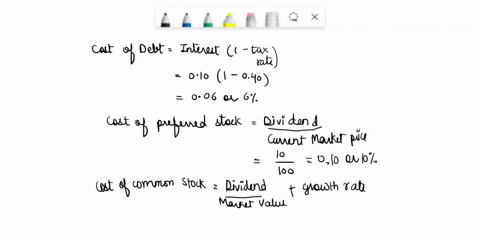 Cost of Debt = Interest (1 - tax rate)
= 0.10 (1 - 0.40)
= 0.06 or 6%
Cost of preferred stock = Dividend / Current Market price
= 10 / 100 = 0.10 or 10%
Cost of common stock = Dividend / Market Value + growth rate